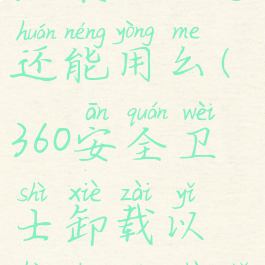 huán néng yòng me
还能用么(
ān quán wèi
360安全卫
shì xiè zài yǐ
士卸载以